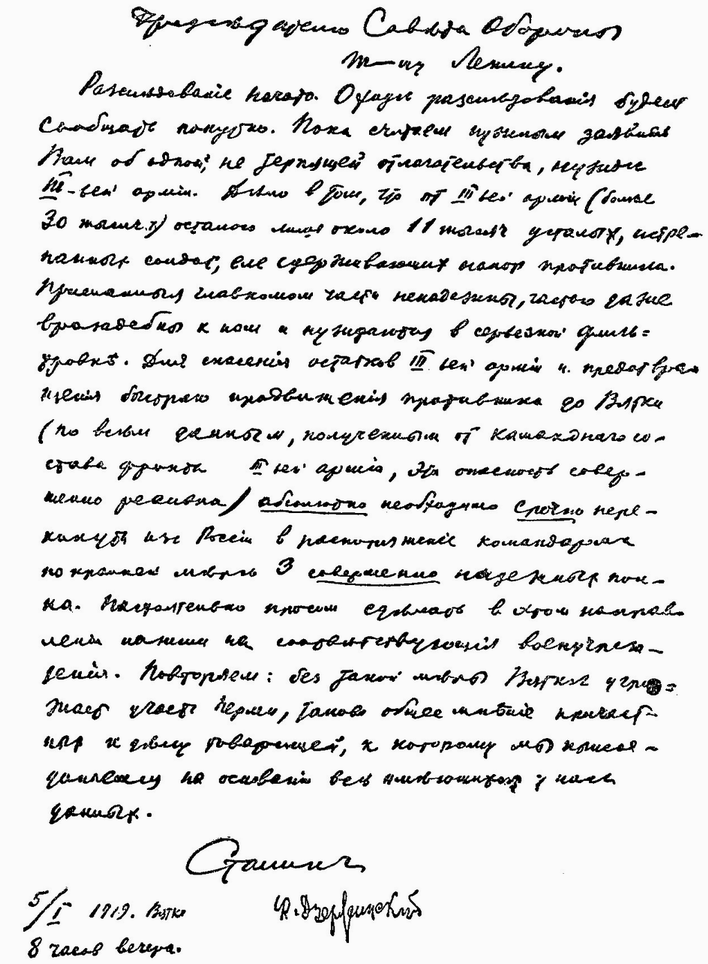 Председателю Совета Обороны
т-щу Ленину.
Разследование начато. О ходе разследования будем
сообщать попутно. Пока считаем нужным заявить
Вам об одной, не терпящей отлагательства, нужде
III-ьей армии. Дело в том, что от III-ьей армии (более
30 тысяч) осталось лишь около 11 тысяч усталых, истре-
панных солдат, еле сдерживающих напор противника.
Присланныя главкомом части ненадежны, частью даже
враждебны к нам и нуждаются в серьезной филь=
тровке. Для спасения остатков III-ьей армии и предотвра-
щения быстраго продвижения противника до Вятки
(по всем данным, полученным от командного со-
става фронта III-ьей армии, эта опасность совер-
шенно реальна) абсолютно необходимо срочно пере-
кинуть из России в распоряжение командарма
по крайней мере 3 совершенно надежных пол-
ка. Настоятельно просим сделать в этом направ-
лении нажим на соответствующия военучреж-
дения. Повторяем: без такой меры Вятке угро=
жает участь Перми, таково общее мнение причаст-
ных к делу товарищей, к которому мы присое-
диняемся на основании всех имеющихся у нас
данных.
Сталин
5/I 1919. Вятка
Ф. Дзержинский
8 часов вечера.